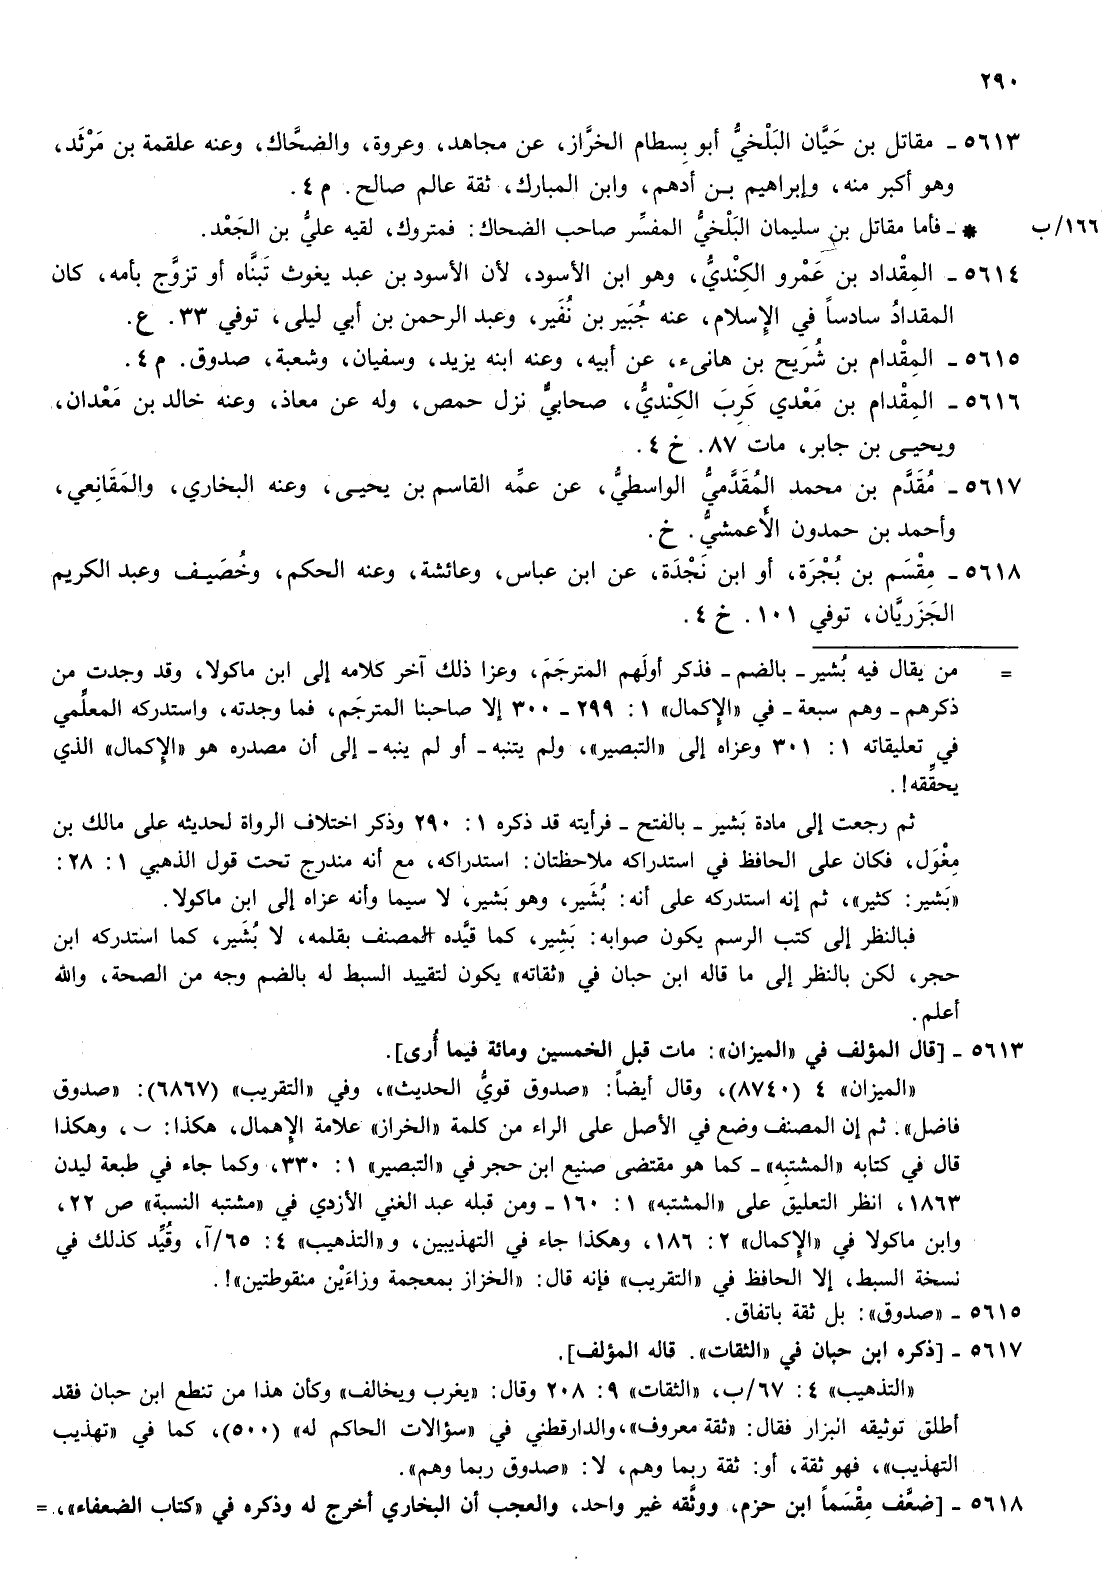 ٢٩٠
٥٦١٣ ـ مقاتل بن حَيَّان البَلْخيُّ أبو بِسطام الخرَّاز، عن مجاهد، وعروة، والضحَّاك، وعنه علقمة بن مَرْثَد،
وهو أكبر منه، وإبراهيم بن أدهم، وابن المبارك، ثقة عالم صالح. م ٤.
١٦٦/ب
* ـ فأما مقاتل بن سليمان البَلْخيُّ المفسِّر صاحب الضحاك: فمتروك، لقيه عليُّ بن الجَعْد.
٥٦١٤ ـ المِقْداد بن عَمْرو الكِنْديُّ، وهو ابن الأسود، لأن الأسود بن عبد يغوث تَبنَّاه أو تزوَّج بأمه، كان
المقدادُ سادساً في الإسلام، عنه جُبَير بن نُفَير، وعبد الرحمن بن أبي ليلى، توفي ٣٣. ع.
٥٦١٥ ـ المِقْدام بن شُرَيح بن هانىء، عن أبيه، وعنه ابنه يزيد، وسفيان، وشعبة، صدوق. م ٤.
٥٦١٦ ـ المِقْدام بن مَعْدي كَرِبَ الكِنْديُّ، صحابيٌّ نزل حمص، وله عن معاذ، وعنه خالد بن مَعْدان،
ويحيى بن جابر، مات ٨٧. خ ٤.
٥٦١٧ ـ مُقَدَّم بن محمد المُقَدَّميُّ الواسطيُّ، عن عمِّه القاسم بن يحيى، وعنه البخاري، والمَقَانِعي،
وأحمد بن حمدون الأَعمشيُّ. خ.
٥٦١٨ ـ مِقْسَم بن بُجْرَة، أو ابن نَجْدَة، عن ابن عباس، وعائشة، وعنه الحكم، وخُصَيف وعبد الكريم
الجَزَريَّان، توفي ١٠١. خ ٤.
= من يقال فيه بُشير ـ بالضم ـ فذكر أولَهم المترجَمَ، وعزا ذلك آخر كلامه إلى ابن ماكولا، وقد وجدت من
ذكرهم ـ وهم سبعة ـ في «الإكمال» ١: ٢٩٩ ـ ٣٠٠ إلا صاحبنا المترجَم، فما وجدته، واستدركه المعلِّمي
في تعليقاته ١: ٣٠١ وعزاه إلى «التبصير»، ولم يتنبه ـ أو لم ينبه ـ إلى أن مصدره هو «الإكمال» الذي
يحقِّقه!.
ثم رجعت إلى مادة بَشير ـ بالفتح ـ فرأيته قد ذكره ١: ٢٩٠ وذكر اختلاف الرواة لحديثه على مالك بن
مِغْوَل، فكان على الحافظ في استدراكه ملاحظتان: استدراكه، مع أنه مندرج تحت قول الذهبي ١: ٢٨:
«بَشير: كثير»، ثم إنه استدركه على أنه: بُشَير، وهو بَشير، لا سيما وأنه عزاه إلى ابن ماكولا.
فبالنظر إلى كتب الرسم يكون صوابه: بَشِير، كما قيَّده المصنف بقلمه، لا بُشَير، كما استدركه ابن
حجر، لكن بالنظر إلى ما قاله ابن حبان في «ثقاته» يكون لتقييد السبط له بالضم وجه من الصحة، والله
أعلم.
٥٦١٣ ـ [قال المؤلف في «الميزان»: مات قبل الخمسين ومائة فيما أُرى].
«الميزان» ٤ (٨٧٤٠)، وقال أيضاً: «صدوق قويُّ الحديث»، وفي «التقريب» (٦٨٦٧): «صدوق
فاضل». ثم إن المصنف وضع في الأصل على الراء من كلمة «الخراز» علامة الإهمال، هكذا: ، وهكذا
قال في كتابه «المشتبِه» ـ كما هو مقتضى صنيع ابن حجر في «التبصير» ١: ٣٣٠، وكما جاء في طبعة ليدن
١٨٦٣، انظر التعليق على «المشتبه» ١: ١٦٠ ـ ومن قبله عبد الغني الأزدي في «مشتبه النسبة» ص ٢٢،
وابن ماكولا في «الإكمال» ٢: ١٨٦، وهكذا جاء في التهذيبين، و«التذهيب» ٤: ٦٥/آ، وقُيِّد كذلك في
نسخة السبط، إلا الحافظ في «التقريب» فإنه قال: «الخزاز بمعجمة وزاءَيْن منقوطتين»!.
٥٦١٥ ـ «صدوق»: بل ثقة باتفاق.
٥٦١٧ ـ [ذكره ابن حبان في «الثقات». قاله المؤلف].
«التذهيب» ٤: ٦٧/ب، «الثقات» ٩: ٢٠٨ وقال: «يغرب ويخالف» وكأن هذا من تنطع ابن حبان فقد
أطلق توثيقه البزار فقال: «ثقة معروف»، والدارقطني في «سؤالات الحاكم له» (٥٠٠)، كما في «تهذيب
التهذيب»، فهو ثقة، أو: ثقة ربما وهم، لا: «صدوق ربما وهم».
٥٦١٨ ـ [ضعَّف مِقْسَماً ابن حزم، ووثَّقه غير واحد، والعجب أن البخاري أخرج له وذكره في «كتاب الضعفاء»، =